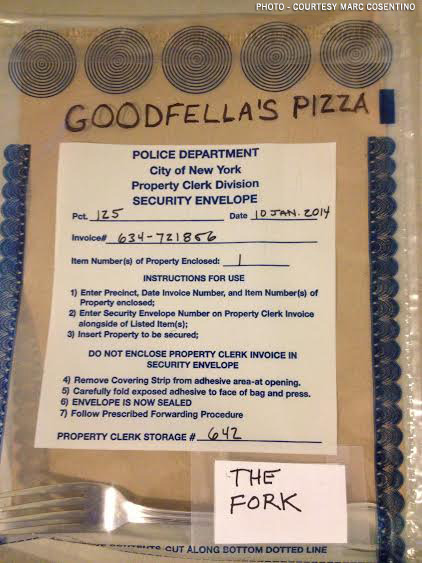 PHOTO - COURTESY MARC COSENTINO
GOODFELLA'S PIZZA
POLICE DEPARTMENT
City of New York
Property Clerk Division
SECURITY ENVELOPE
Pct. 125 Date 10 JAN. 2014
Invoice# 634-721856
Item Number(s) of Property Enclosed: 1
INSTRUCTIONS FOR USE
1) Enter Precinct, Date Invoice Number, and Item Number(s) of
Property enclosed;
2) Enter Security Envelope Number on Property Clerk Invoice
alongside of Listed Item(s);
3) Insert Property to be secured;
DO NOT ENCLOSE PROPERTY CLERK INVOICE IN
SECURITY ENVELOPE
4) Remove Covering Strip from adhesive area-at opening.
5) Carefully fold exposed adhesive to face of bag and press.
6) ENVELOPE IS NOW SEALED
7) Follow Prescribed Forwarding Procedure
PROPERTY CLERK STORAGE # 642
THE
FORK
CONTENTS CUT ALONG BOTTOM DOTTED LINE